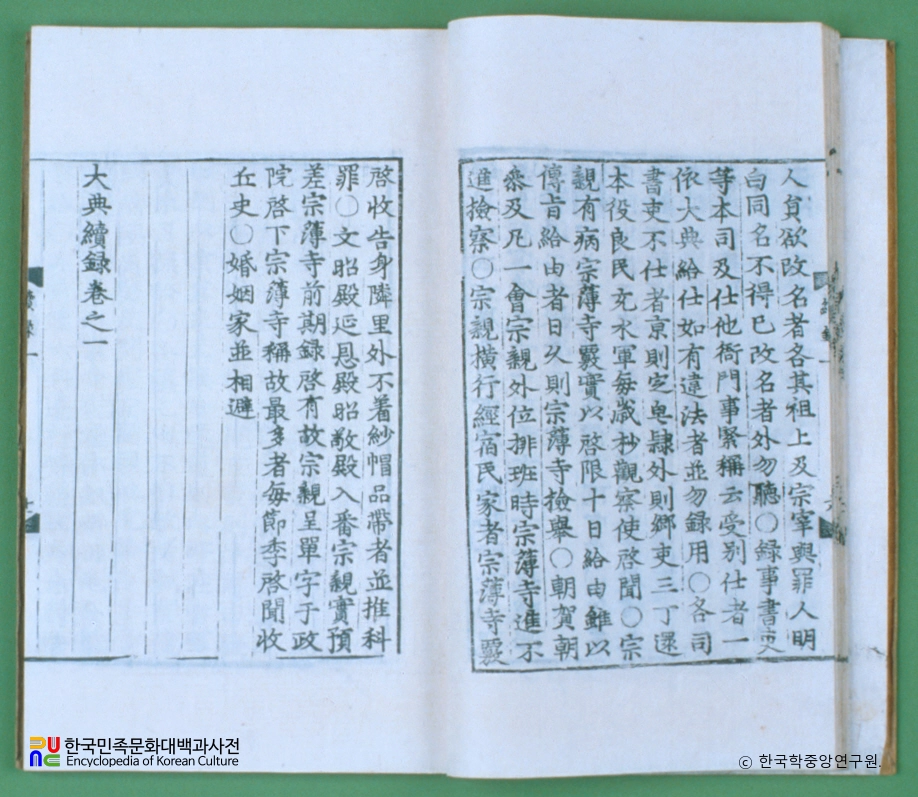 人負欲改名者各其祖上及宗宰與罪人明
白同名不得已改名者外勿聽○錄事書吏
等本司及仕他衙門事緊稱云受別仕者一
依大典給仕如有違法者並勿錄用○各司
書吏不仕者京則定皂隷外則鄕吏三丁還
本役良民充水軍每歲抄觀察使啓聞○宗
親有病宗簿寺覈實以啓限十日給由雖以
傳旨給由者日久則宗簿寺檢擧○朝賀朝
參及凡一會宗親外位排班時宗簿寺進不
進檢察○宗親橫行經宿民家者宗簿寺覈
啓收告身隣里外不着紗帽品帶者並推科
罪○文昭殿延恩殿昭敬殿入番宗親實預
差宗簿寺前期錄啓有故宗親呈單字于政
院啓下宗簿寺稱故最多者每節季啓聞收
丘史○婚姻家並相避
大典續錄卷之一
한국민족문화대백과사전
Encyclopedia of Korean Culture
ⓒ 한국학중앙연구원.